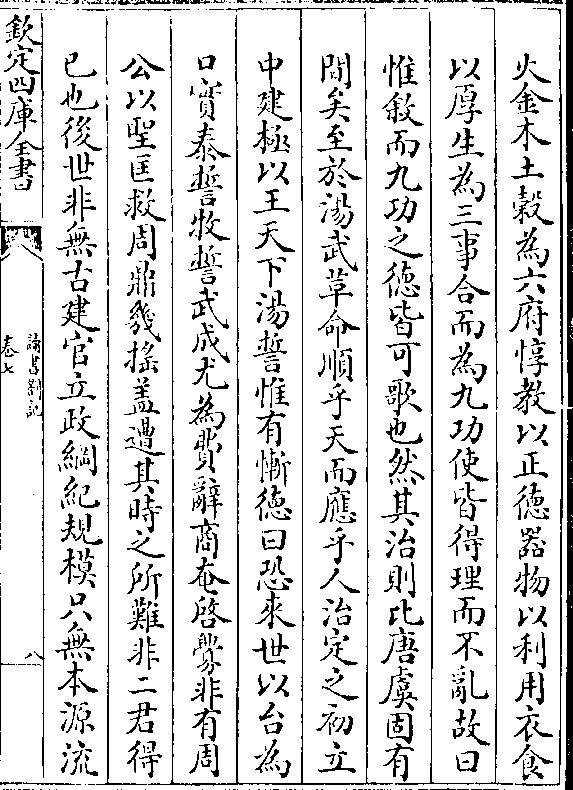 火金木土穀為六府惇教以正德器物以利用衣食
以厚生為三事合而為九功使皆得理而不亂故曰
惟敘而九功之德皆可歌也然其治則比唐虞固有
間矣至於湯武革命順乎天而應乎人治定之初立
中建極以王天下湯誓惟有慚德曰恐來世以台為
口實泰誓牧誓武成尤為費辭商奄啓釁非有周
公以聖匡救周鼎幾搖盖遭其時之所難非二君得
已也後世非無古建官立政綱紀規模只無本源流
欽定四庫全書
讀書劄記
卷七
八